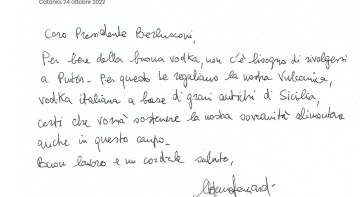 Catania, 24 ottobre 2022
Caro Presidente Berlusconi,
Per bere della buona vodka, non c'è bisogno di rivolgersi
a Putin - Per questo Le regaliamo la nostra Vulcanica,
vodka italiana a base di grani antichi di Sicilia,
certi che vorrà sostenere la nostra sovranità alimentare
anche in questo campo -
Buon lavoro e un cordiale saluto,